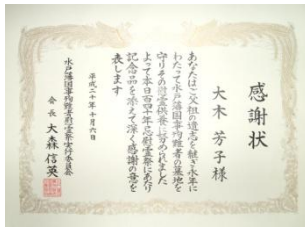 感謝状
大木 芳子様
あなたはご父祖の遺志を継ぎ永年に
わたって水戸藩国事殉難者の墓地を
守りその慰霊供養に努められました
よって本日百四十年忌慰霊祭にあたり
記念品を添えて深く感謝の意を
表します
平成二十年十月六日
水戸藩国事殉難者慰霊祭実行委員会
会長 大森 信英